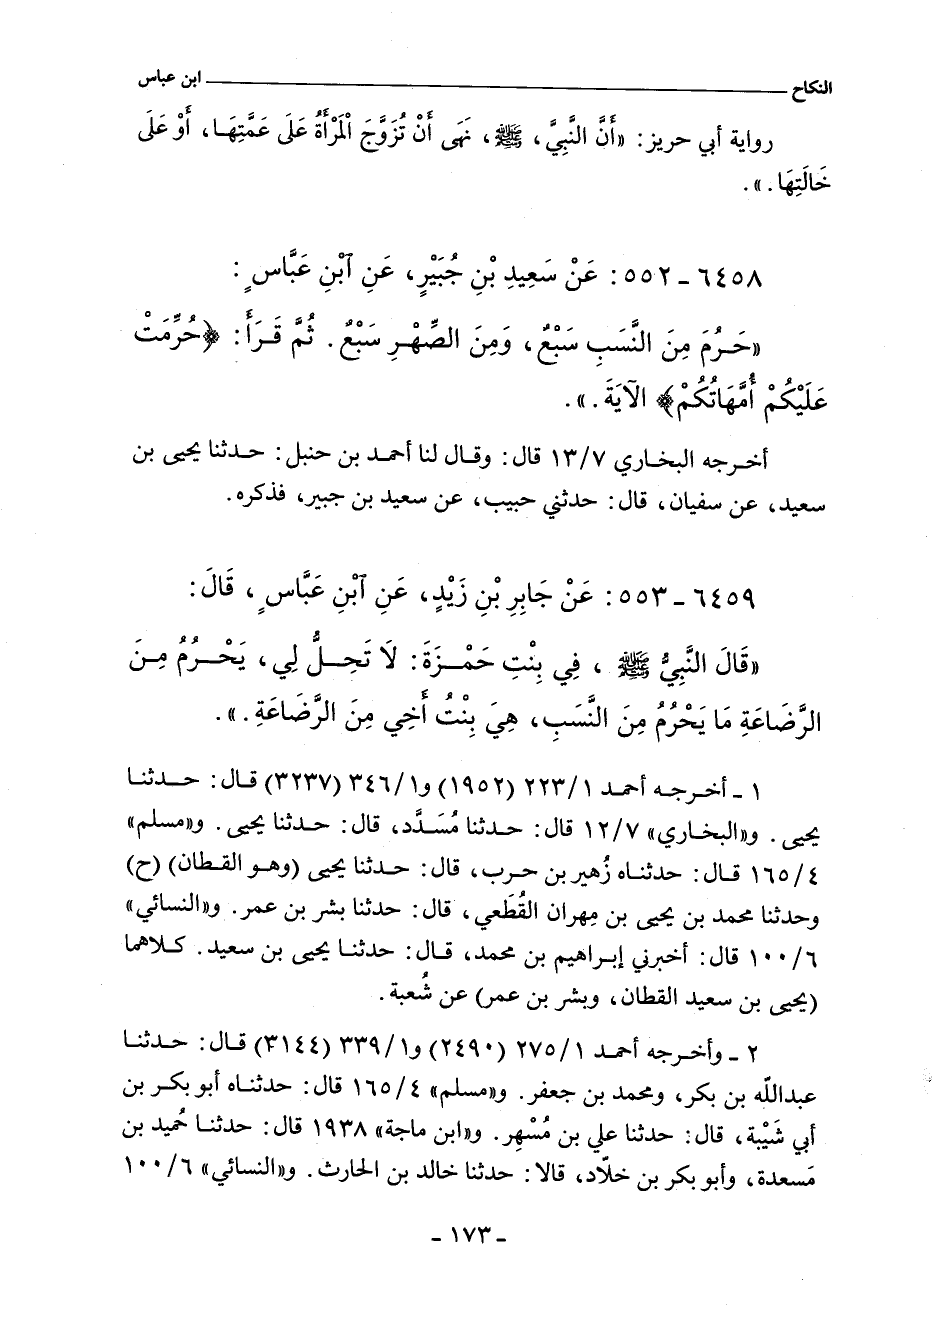 النكاح ــــــ ابن عباس
رواية أبي حريز: «أَنَّ النَّبِيَّ، ﷺ، نَهَى أَنْ تُزَوَّجَ الْمَرْأَةُ عَلَى عَمَّتِهَا، أَوْ عَلَى
خَالَتِهَا.».
٦٤٥٨ - ٥٥٢: عَنْ سَعِيدِ بْنِ جُبَيْرٍ، عَنِ ابْنِ عَبَّاسٍ:
«حَرُمَ مِنَ النَّسَبِ سَبْعٌ، وَمِنَ الصِّهْرِ سَبْعٌ. ثُمَّ قَرَأَ: ﴿حُرِّمَتْ
عَلَيْكُمْ أُمَّهَاتُكُمْ﴾ الآيَةَ.».
أخرجه البخاري ١٣/٧ قال: وقال لنا أحمد بن حنبل: حدثنا يحيى بن
سعيد، عن سفيان، قال: حدثني حبيب، عن سعيد بن جبير، فذكره.
٦٤٥٩ - ٥٥٣: عَنْ جَابِرِ بْنِ زَيْدٍ، عَنِ ابْنِ عَبَّاسٍ، قَالَ:
«قَالَ النَّبِيُّ ﷺ، فِي بِنْتِ حَمْزَةَ: لَا تَحِلُّ لِي، يَحْرُمُ مِنَ
الرَّضَاعَةِ مَا يَحْرُمُ مِنَ النَّسَبِ، هِيَ بِنْتُ أَخِي مِنَ الرَّضَاعَةِ.».
١ - أخرجه أحمد ٢٢٣/١ (١٩٥٢) و٣٤٦/١ (٣٢٣٧) قال: حدثنا
يحيى. و«البخاري» ١٢/٧ قال: حدثنا مُسَدَّد، قال: حدثنا يحيى. و«مسلم»
١٦٥/٤ قال: حدثناه زُهير بن حرب، قال: حدثنا يحيى (وهو القطان) (ح)
وحدثنا محمد بن يحيى بن مِهران القُطَعي، قال: حدثنا بشر بن عمر. و«النسائي»
١٠٠/٦ قال: أخبرني إبراهيم بن محمد، قال: حدثنا يحيى بن سعيد. كلاهما
(يحيى بن سعيد القطان، وبشر بن عمر) عن شُعبة.
٢ - وأخرجه أحمد ٢٧٥/١ (٢٤٩٠) و٣٣٩/١ (٣١٤٤) قال: حدثنا
عبدالله بن بكر، ومحمد بن جعفر. و«مسلم» ١٦٥/٤ قال: حدثناه أبو بكر بن
أبي شَيْبة، قال: حدثنا علي بن مُسْهِر. و«ابن ماجة» ١٩٣٨ قال: حدثنا حُميد بن
مَسعدة، وأبو بكر بن خلاّد، قالا: حدثنا خالد بن الحارث. و«النسائي» ١٠٠/٦
- ١٧٣ -